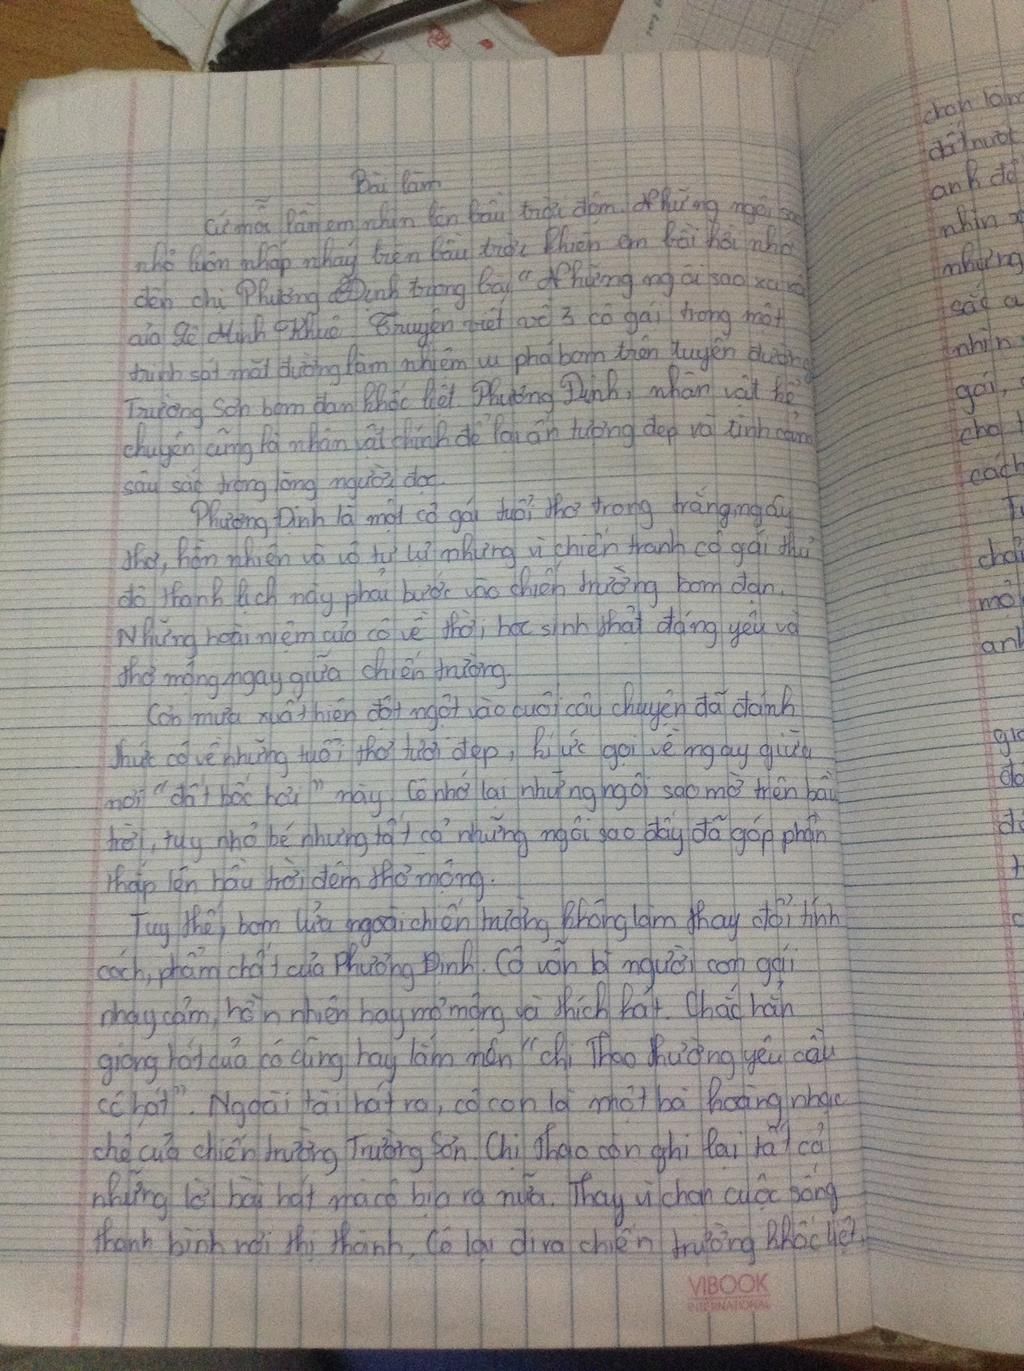 Bài làm
Cứ mỗi lần em nhìn lên bầu trời đêm. Những ngôi sao
nhỏ luôn nhấp nháy trên bầu trời khiến em bồi hồi nhớ
đến chị Phương Định trong bài "Những ngôi sao xa xôi
của Lê Minh Khuê. Truyện viết về 3 cô gái trong một
trinh sát mặt đường làm nhiệm vụ phá bom trên tuyến đường
Trường Sơn bom đạn khốc liệt. Phương Định, nhân vật kể
chuyện cũng là nhân vật chính để lại ấn tượng đẹp và tình cảm
sâu sắc trong lòng người đọc.
Phương Định là một cô gái tuổi thơ trong trắng, ngây
thơ, hồn nhiên và vô tư lự nhưng vì chiến tranh cô gái thủ
đô thanh lịch này phải bước vào chiến trường bom đạn.
Những hoài niệm của cô về thời học sinh thật đáng yêu và
thơ mộng, ngay giữa chiến trường.
Cơn mưa xuất hiện đột ngột vào cuối câu chuyện đã đánh
thức cô về những tuổi thơ tươi đẹp, kí ức gọi về ngay giữa
nơi "đất bốc hơi" này. Cô nhớ lại những ngôi sao mờ trên bầu
trời, tuy nhỏ bé nhưng tất cả những ngôi sao đấy đã góp phần
thắp lên bầu trời đêm thơ mộng.
Tuy thế, bom lửa ngoài chiến trường không làm thay đổi tính
cách, phẩm chất của Phương Định. Cô vẫn là người con gái
nhạy cảm, hồn nhiên hay mơ mộng và thích hát. Chắc hẳn
giọng hát của cô cũng hay lắm nên "chị Thao thường yêu cầu
cô hát". Ngoài tài hát ra, cô còn là một bà hoàng nhạc
chế của chiến trường Trường Sơn. Chị Thao còn ghi lại tất cả
những lời bài hát mà cô bịa ra nữa. Thay vì chọn cuộc sống
thanh bình nơi thị thành, Cô lại đi ra chiến trường khốc liệt,
VIBOOK
INTERNATIONAL
đất nước
anh
nhìn
những
sắc
nhìn
gái,
cho
cách